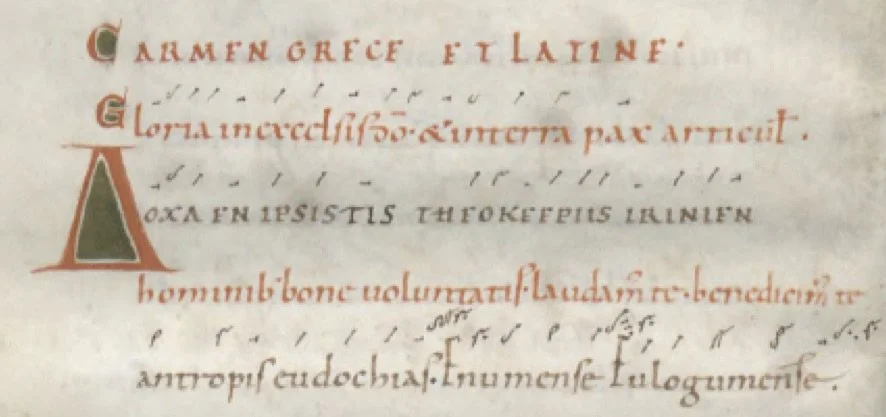 CARMEN GRECE ET LATINE·
Gloria in excelsis dō· & in terra pax articul̄.
ΔOXA EN IPSISTIS THEOKEEPIIS IRINIEN
hominib' bone uoluntatis· laudam̄ te· benedicim̄ te
antropis eudochias· Enumense Eulogumense.